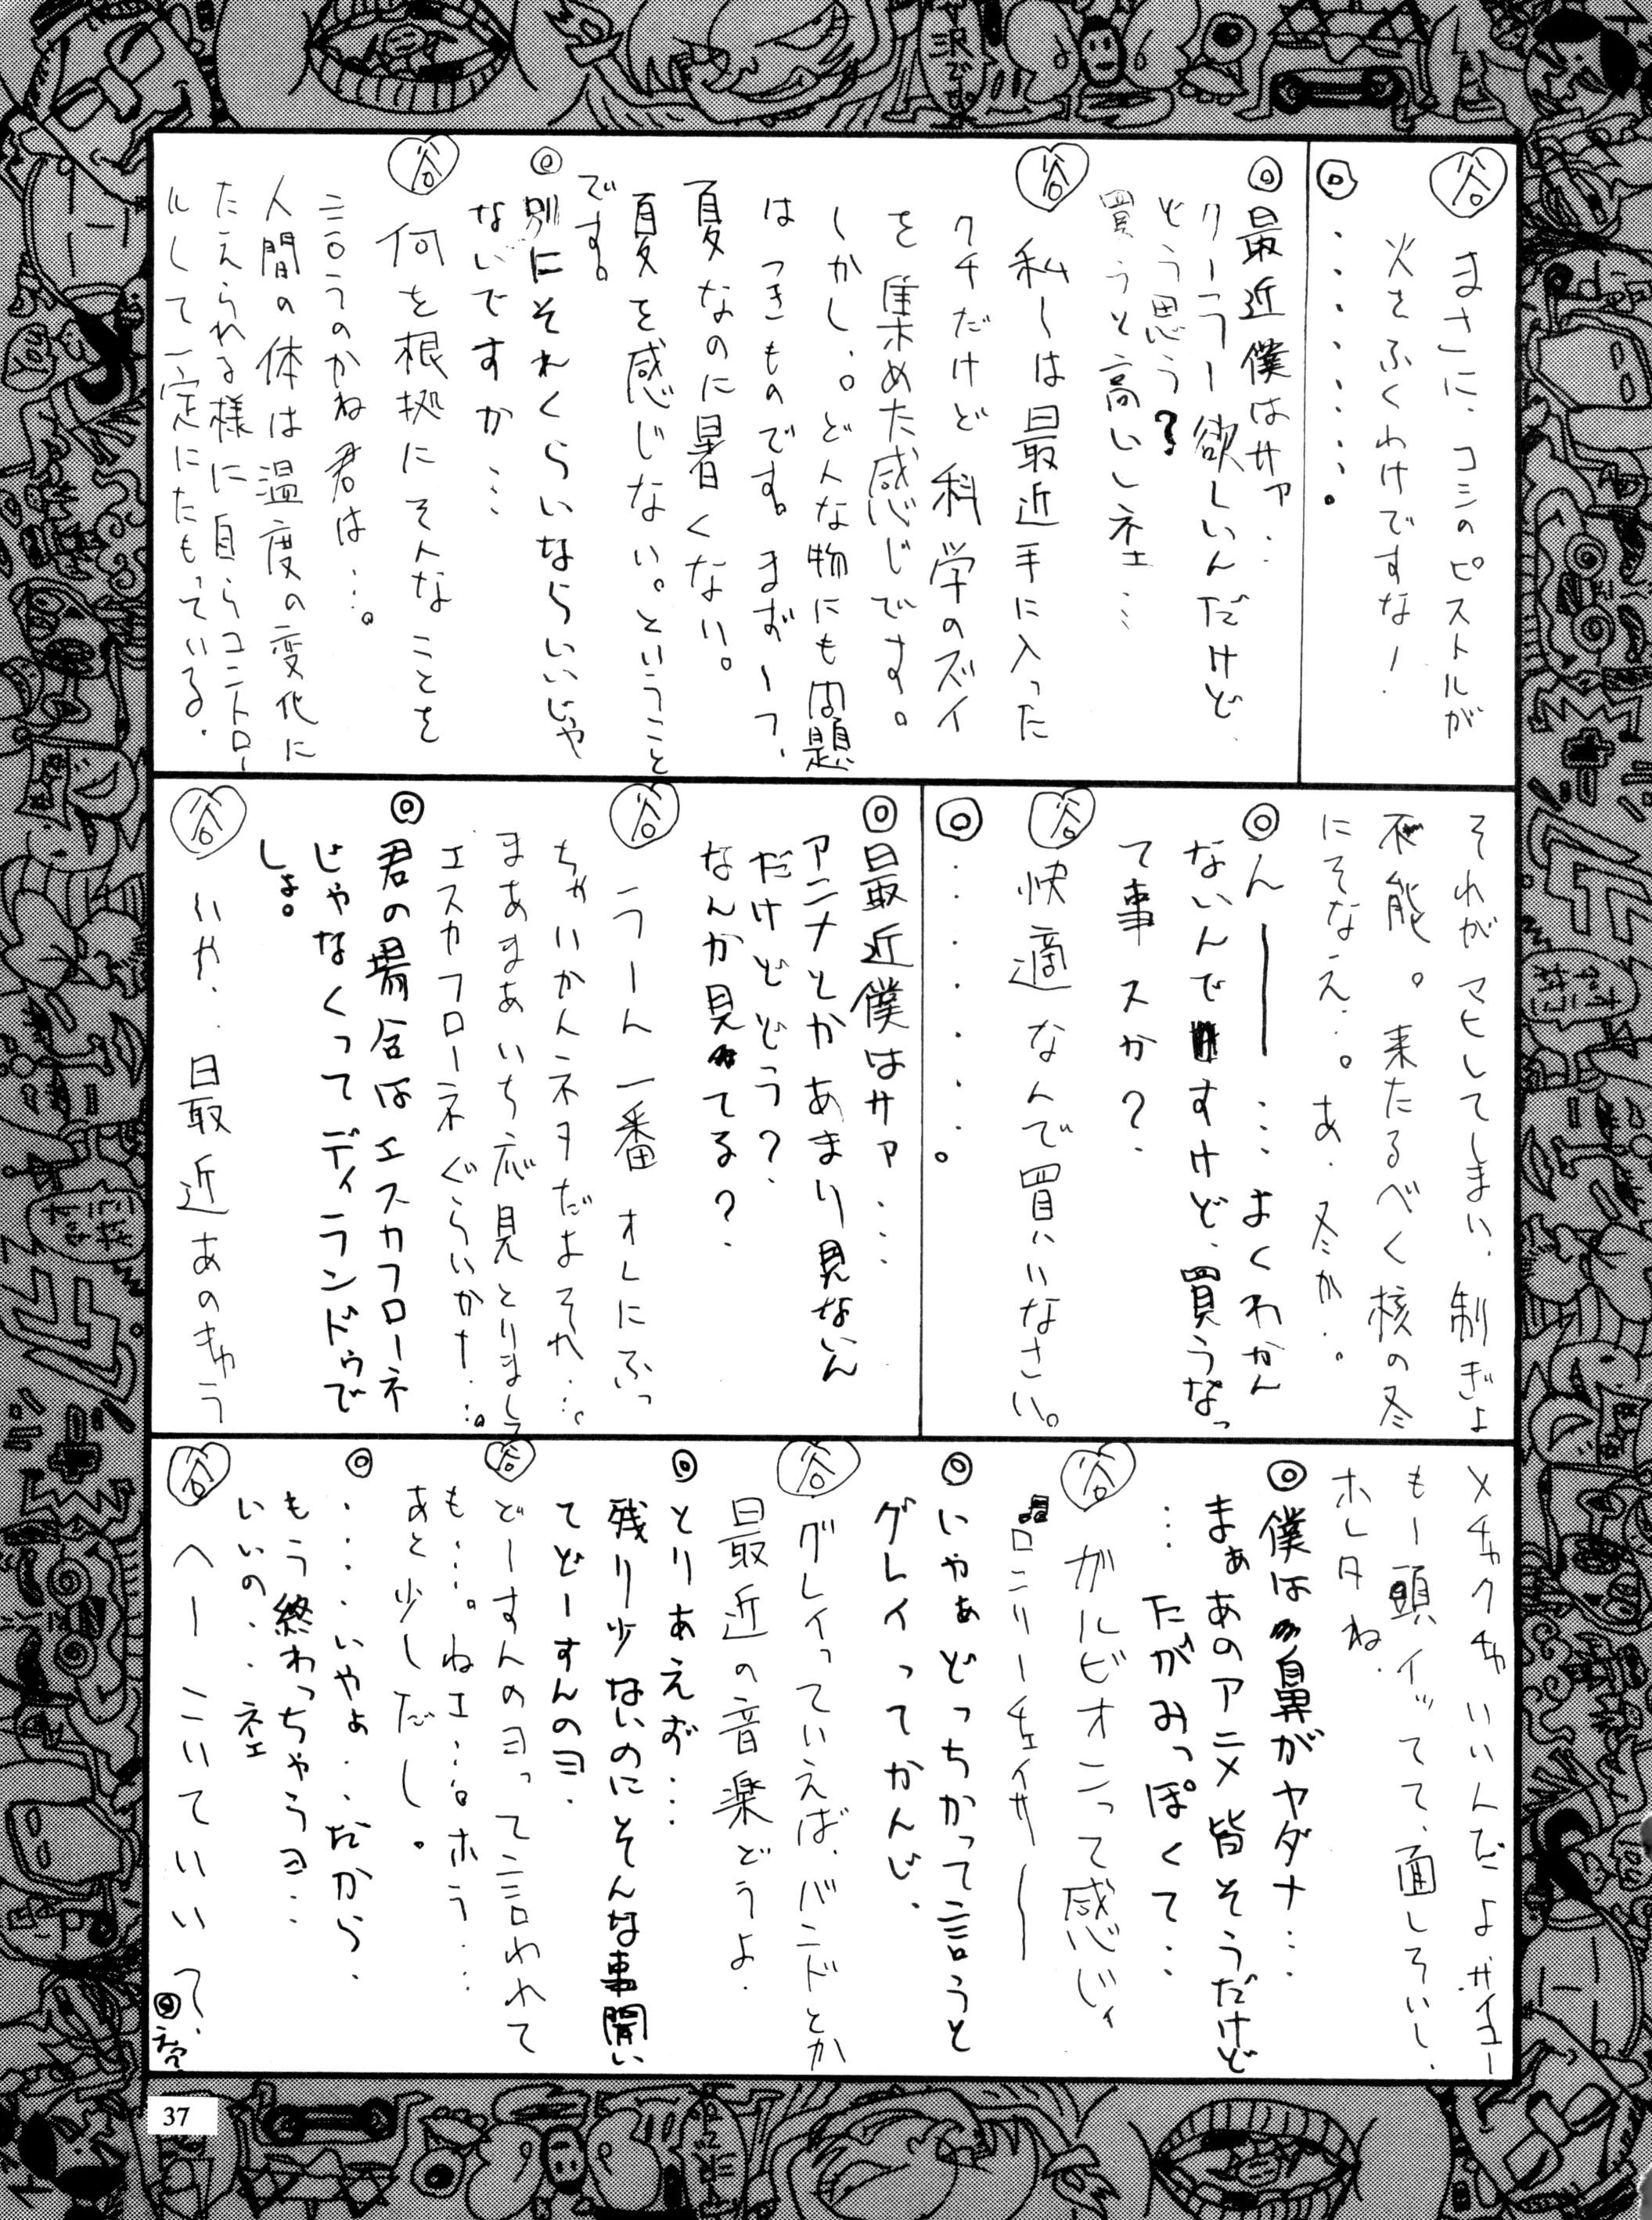 谷 まさに、コシのピストルが
火をふくわけですな！
◎ ・・・・・・・・・。
◎最近僕はサァ…
クーラー欲しいんだけど、
どう思う？
買うと高いしネェ…
谷 私ーは最近手に入った
クチだけど 科学のズイ
を集めた感じです。
しかし。どんな物にも問題
はつきものです。まずーつ、
夏なのに暑くない。
夏を感じない。ということ
です。
◎別にそれくらいならいいじゃ
ないですか…
谷 何を根拠にそんなことを
言うのかね君は…。
人間の体は温度の変化に
たえられる様に自らコントロー
ルして一定にたもっている。
それがマヒしてしまい、制ぎょ
不能。来たるべく核の冬
にそなえ…。あ、冬か…。
◎んー…よくわかん
ないんですけど、買うなっ
て事スか？
谷 快適なんで買いなさい。
◎ ・・・・・・・。
◎最近僕はサァ…
アニメとかあまり見ないん
だけどどう？
なんか見てる？
谷 うーん 一番オレにふっ
ちゃいかんネタだよそれ…。
まあまあいち応見とりまして
エスカフローネぐらいかナ…。
◎君の場合はエスカフローネ
じゃなくってディランドゥで
しょ。
谷 いや、最近あのきゅう
メチャクチャいいんだよ、サイコー
もー頭イッてて、面しろいし、
ホレタね、
◎僕は鼻がヤダナ…
まぁあのアニメ皆そうだけど
… たがみっぽくて…
谷 ガルビオンって感じィ
♬ロンリーチェイサー
◎いやぁどっちかって言うと
グレイってかんじ、
谷 グレイっていえば、バンドとか
最近の音楽どうよ、
◎とりあえず…
残り少ないのにそんな事聞い
てどーすんのヨ、
谷 どーすんのヨって言われて
も…。ねェ…。ホラ…
あと少しだし。
◎・・・・いやぁ…だから、
もう終わっちゃうヨ…
いいの…ネェ
谷 へーこいていい？、
◎えっ?
37